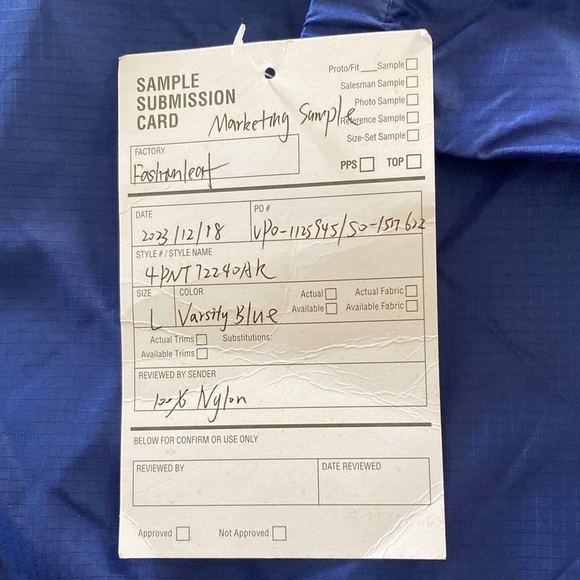 SAMPLE
SUBMISSION
CARD
Marketing Sample
Proto/Fit ___ Sample
Salesman Sample
Photo Sample
Reference Sample
Size-Set Sample
PPS TOP
FACTORY
Fashionleaf
DATE
2023/12/18
PO #
VPO-1125945/SO-1517622
STYLE # / STYLE NAME
4PNT72240AK
SIZE
L
COLOR
Varsity Blue
Actual Actual Fabric
Available Available Fabric
Actual Trims Substitutions:
Available Trims
REVIEWED BY SENDER
100% Nylon
BELOW FOR CONFIRM OR USE ONLY
REVIEWED BY
DATE REVIEWED
Approved Not Approved